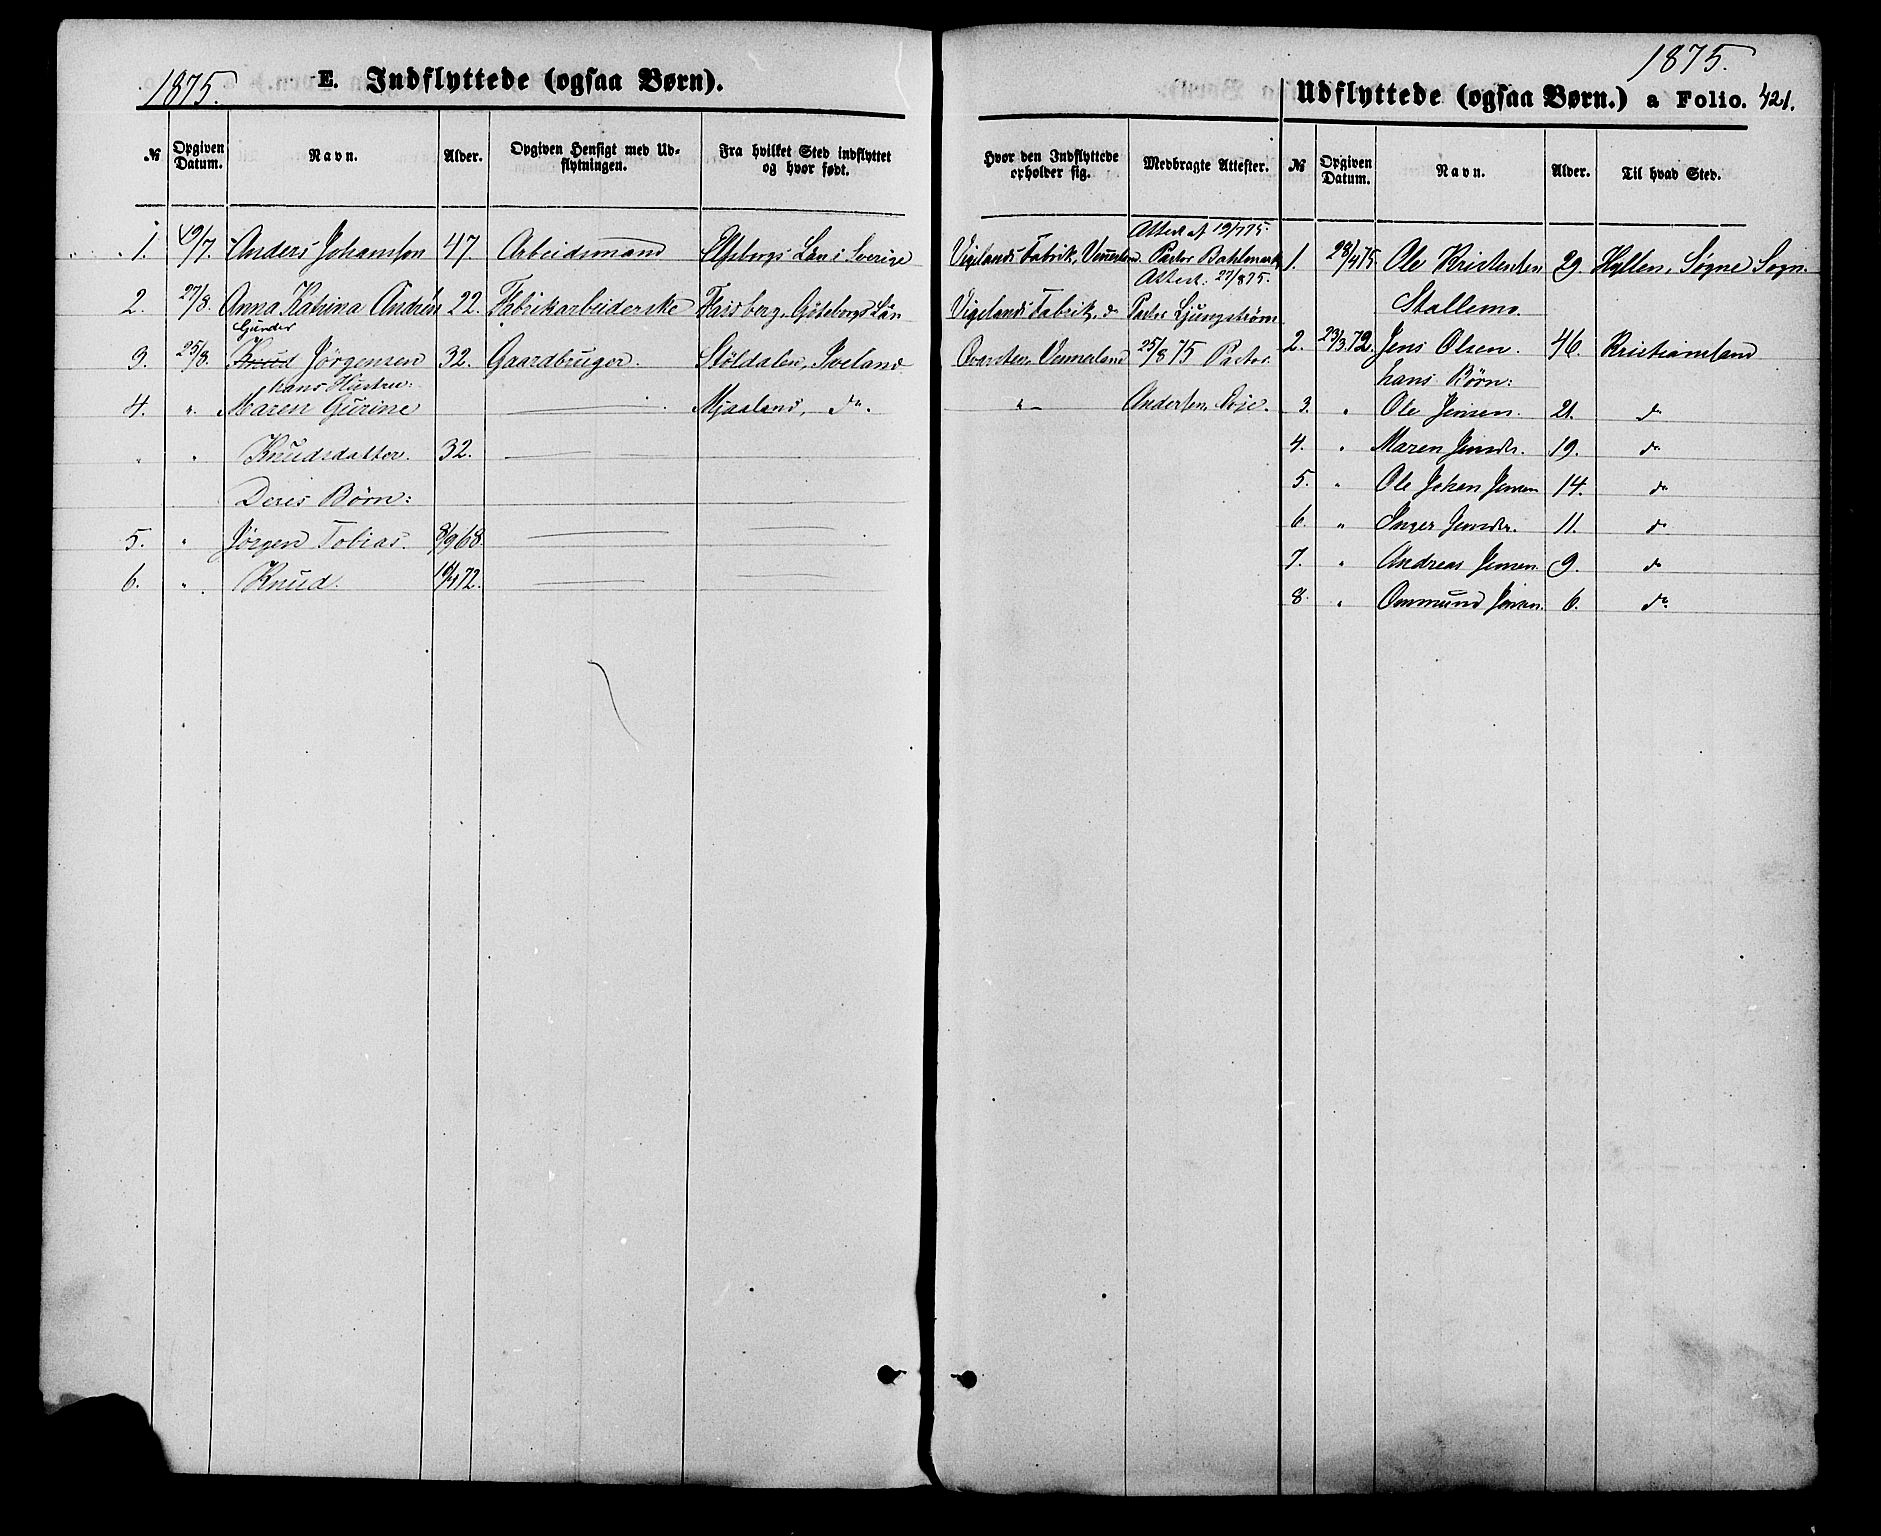 1875.
E. Indflyttede (ogsaa Børn).
№ Opgiven Datum. Navn. Alder. Opgiven Hensigt med Udflytningen. Fra hvilket Sted indflyttet og hvor født. Hvor den Indflyttede opholder sig. Medbragte Attester.
1. 19/7. Anders Johansson 47. Arbeidsmand Elfsborgs Län i Sverige Vigelands Fabrik, Vennesland Attest af 19/7 75. Pastor
2. 27/8. Anna Katrina 22. Fabrikarbeiderske Göteborgs Län Vigelands Fabrik, do Attest. 27/8 75. Pastor Ljungström
3. 25/8. Gunder
Knud Jörgensen 32. Gaardbruger. Stöldalen, Iveland Vennesland 25/8 75 Pastor
hans Hustru:
4. " Maren Gurine Mjaaland, do. " Andersen, Evje.
" " Knudsdatter. 32.
Deres Børn:
5. " Jörgen Tobias. 8/9 68.
6. " Knud. 72.
1875.
Udflyttede (ogsaa Børn.) a Folio. 421.
№ Opgiven Datum. Navn. Alder. Til hvad Sted.
1. 28/4 75 Ole Kristensen 29 Hyllen, Søgne Sogn.
Stallemo.
2. 23/3 72. Jens Olsen. 46. Kristiansand
hans Børn:
3. " Ole Jensen. 21. do
4. " Maren Jensdr. 19. do
5. " Ole Johan Jensen 14. do
6. " Inger Jensdr. 11. do
7. " Andreas Jensen. 9. do
8. " Ommund Jensen. 6. do